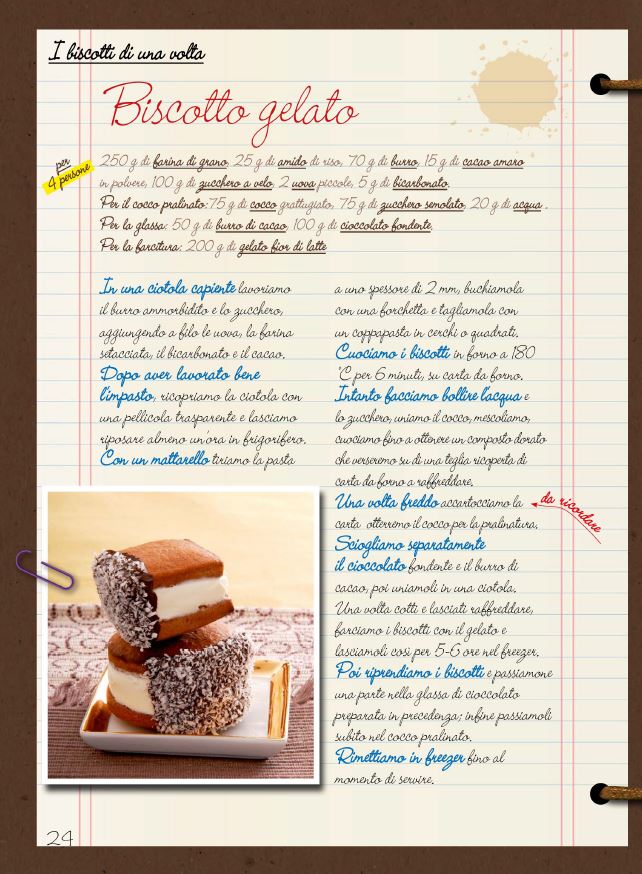 I biscotti di una volta
Biscotto gelato
per
4 persone
250 g di farina di grano, 25 g di amido di riso, 70 g di burro, 15 g di cacao amaro
in polvere, 100 g di zucchero a velo, 2 uova piccole, 5 g di bicarbonato.
Per il cocco pralinato: 75 g di cocco grattugiato, 75 g di zucchero semolato, 20 g di acqua .
Per la glassa: 50 g di burro di cacao, 100 g di cioccolato fondente.
Per la farcitura: 200 g di gelato fior di latte
In una ciotola capiente lavoriamo
il burro ammorbidito e lo zucchero,
aggiungendo a filo le uova, la farina
setacciata, il bicarbonato e il cacao.
Dopo aver lavorato bene
l'impasto, ricopriamo la ciotola con
una pellicola trasparente e lasciamo
riposare almeno un'ora in frigorifero.
Con un mattarello tiriamo la pasta
a uno spessore di 2 mm, buchiamola
con una forchetta e tagliamola con
un coppapasta in cerchi o quadrati.
Cuociamo i biscotti in forno a 180
°C per 6 minuti, su carta da forno.
Intanto facciamo bollire l'acqua e
lo zucchero, uniamo il cocco, mescoliamo,
cuociamo fino a ottenere un composto dorato
che verseremo su di una teglia ricoperta di
carta da forno a raffreddare.
Una volta freddo accartocciamo la
carta otterremo il cocco per la pralinatura.
da ricordare
Sciogliamo separatamente
il cioccolato fondente e il burro di
cacao, poi uniamoli in una ciotola.
Una volta cotti e lasciati raffreddare,
farciamo i biscotti con il gelato e
lasciamoli così per 5-6 ore nel freezer.
Poi riprendiamo i biscotti e passiamone
una parte nella glassa di cioccolato
preparata in precedenza; infine passiamoli
subito nel cocco pralinato.
Rimettiamo in freezer fino al
momento di servire.
24